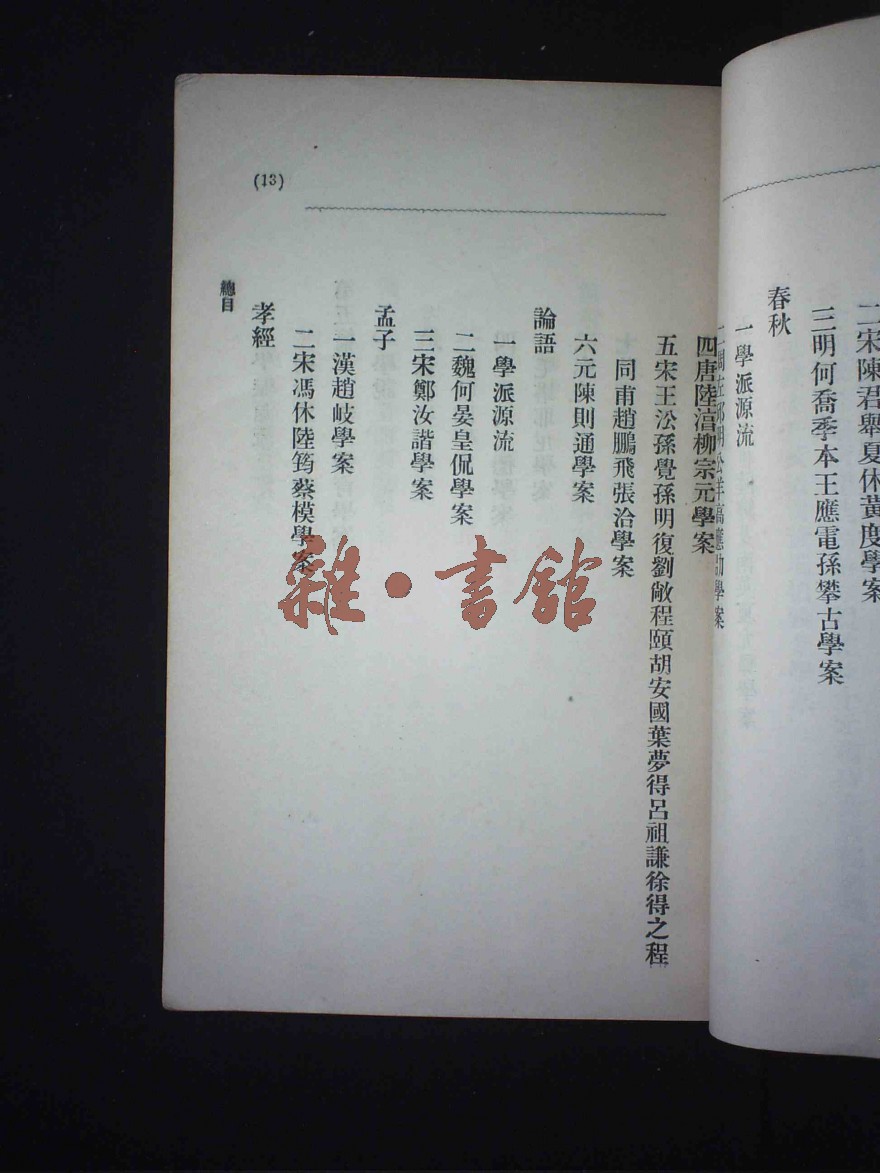 二宋陳君舉夏休黃度學案
三明何喬季本王應電孫攀古學案
春秋
一學派源流
二周左邱明公羊高應劭學案
(13)
四唐陸淳柳宗元學案
五宋王沿孫覺孫明復劉敞程頤胡安國葉夢得呂祖謙徐得之程
同甫趙鵬飛張洽學案
六元陳則通學案
論語
一學派源流
二魏何晏皇侃學案
三宋鄭汝諧學案
孟子
一漢趙岐學案
二宋馮休陸筠蔡模學案
孝經
總目
雜·書館